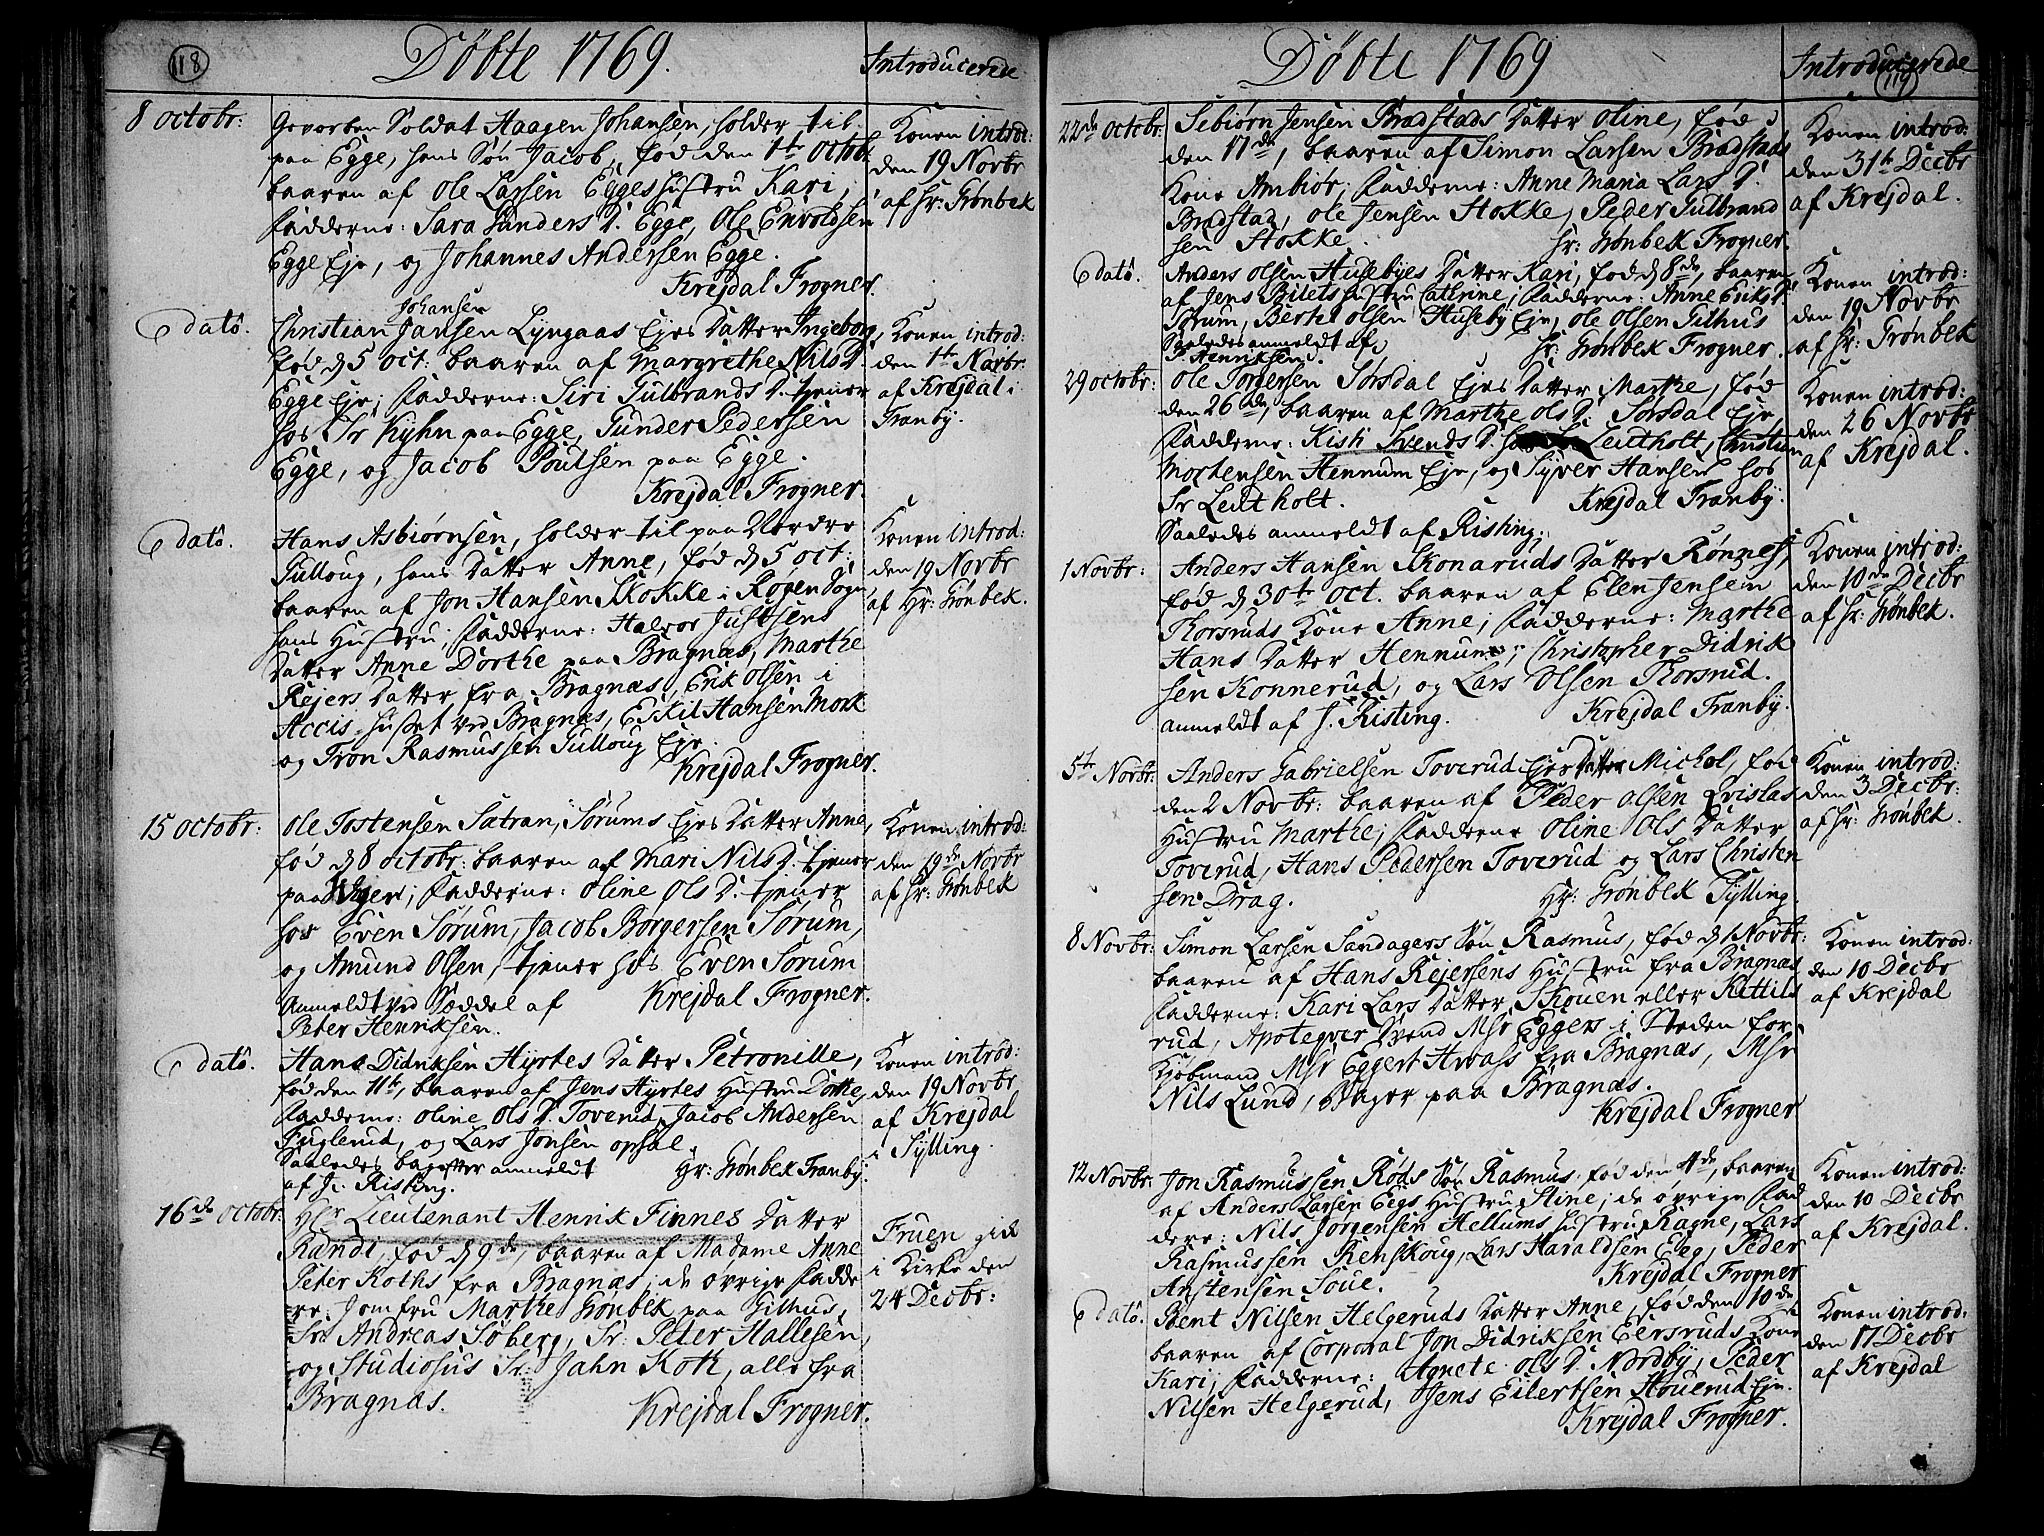 118
Döbte 1769.
Introducerede
8 octobr:
Gevorben Soldat Haagen Johansen, holder til
paa Egge, hans Søn Jacob, fød den 1te Octob:
baaren af Ole Larsen Egges hustru Kari;
Fadderne: Sara Gunders D. Egge, Ole Envoldsen
Egge Eje, og Johannes Andersen Egge.
Krejdal Frogner.
Konen introd:
den 19 Novbr
af Hr: Grønbek
E dato.
Johansen
Christian Jansen Lyngaas Ejes Datter Ingeborg,
fød d 5 oct: baaren af Margrethe Nils D.
Egge Eje; Fadderne: Siri Gulbrands D. tjener
hos Sr Kyhn paa Egge, Gunder Pedersen
Egge, og Jacob Poulsen paa Egge.
Krejdal Frogner.
Konen introd:
den 1te Novbr:
af Krejdal i
Tranby.
E dato.
Hans Asbiørnsen, holder til paa Nordre
Gulloug, hans Datter Anne, fød d 5 oct:
baaren af Jon Hansen Skokke i Røgen Sogn,
hans Hustru; Fadderne: Halvor Justsens
Datter Anne Dorthe paa Bragnæs, Marthe
Rejers Datter fra Bragnæs, Erik Olsen i
Accis-huset ved Bragnæs, Eskil Hansen Mork
og Tron Rasmussen Gulloug Eje.
Krejdal Frogner.
Konen introd:
den 19 Novbr
af Hr: Grønbek.
15 octobr:
Ole Tostensen Satran, Sørums Ejes Datter Anne,
fød d 8 octobr: baaren af Mari Nils D. tjener
paa Eger; Fadderne: Oline Ols D. tjener
hos Even Sørum, Jacob Borgersen Sørum,
og Amund Olsen, tjener hos Even Sørum
Anmeldt ved Seddel af
Krejdal Frogner.
Peter Henriksen.
Konen introd:
den 19de Novbr
af Hr: Grønbek
E dato.
Hans Didriksen Hyrtes Datter Petronille,
fød den 11te, baaren af Jens Hyrtes Hustru Dorthe,
Fadderne: Oline Ols D. Toverud, Jacob Andersen
Fuglerud, og Lars Jonsen opsal.
Saaledes bagefter anmeldt
Hr: Grønbek Tranby.
af J: Risting.
Konen introd:
den 19 Novbr
af Krejdal
i Sylling.
16de octobr:
Hr Lieutenant Henrik Finnes Datter
Randi, fød d 9de, baaren af Madame Anne
Peter Koths fra Bragnæs; de øvrige Fadde
re: Jomfru Marthe Grønbek paa Gilhus,
Sr: Andreas Søberg, Sr: Peter Hallesen,
og Studiosus Sr: Jahn Koth, alle fra
Bragnæs.
Krejdal Frogner.
Fruen gik
i Kirke den
24 Decbr:
Döbte 1769
Introducerede
119
22de octobr:
Sebiørn Jensen Bradstads Datter Oline, fød
den 17de, baaren af Simon Larsen Bradstads
Kone Ambiør; Fadderne: Anne Maria Lars D.
Bradstad, Ole Jensen Stokke, Peder Gulbrand
sen Stokke.
Hr: Grønbek Frogner.
Konen introd:
den 31te Decbr
af Krejdal.
E dato.
Anders Olsen Husebyes Datter Kari, fød d 8de, baaren
af Jens Bilets hustru Cathrine, Fadderne: Anne Eriks D.
Sørum, Berthe Olsen Huseby Eje, Ole Olsen Gilhus
Saaledes anmeldt af
P. Henriksen.
Hr: Grønbek Frogner.
Konen introd:
den 19 Novbr
af Hr: Grønbek
29 octobr:
Ole Torgersen Sørsdal Ejes Datter Marthe, fød
den 26de, baaren af Marthe Ols D. Sørsdal Eje,
Fadderne: Kisti Svends D. hos Sr Leutholt, Christian
Mortensen Hennum Eje, og Syver Hansen hos
Sr Leutholt.
Krejdal Tranby.
Saaledes anmeldt af Risting.
Konen introd:
den 26 Novbr
af Krejdal.
1 Novbr:
Anders Hansen Skonaruds Datter Rønnes,
fød d 30te oct. baaren af Elen Jensen
Thorsruds Kone Anne; Fadderne: Marthe
Hans Datter Hennum; Christopher Didrik
sen Konnerud, og Lars Olsen Thorsrud.
anmeldt af J. Risting.
Krejdal Tranby.
Konen introd:
den 10de Decbr
af Hr: Grønbek.
5te Novbr:
Anders Gabrielsen Toverud Ejes Datter Michol, fød
den 2 Novbr: baaren af Peder Olsen Qvislas
Hustru Marthe; Fadderne Oline Ols Datter
Toverud, Hans Pedersen Toverud og Lars Christen
sen Drag.
Hr: Grønbek Sylling.
Konen introd:
den 3 Decbr:
af Hr: Grønbek.
8 Novbr:
Simon Larsen Sandagers Søn Rasmus, fød d 1 Novbr:
baaren af Hans Rejersens Hustru fra Bragnæs
Fadderne: Kari Lars Datter Skouen eller Kittils
rud, Apoteqver Svend Msr Eggers i Steden for
Kjøbmand Msr Eggert Hvass fra Bragnæs, Msr
Nils Lund, Bager paa Bragnæs.
Krejdal Frogner
Konen introd:
den 10 Decbr
af Krejdal
12 Novbr:
Jon Rasmussen Røds Søn Rasmus, fød den 4de, baaren
af Anders Larsen Eegs Hustru Stine; de øvrige Fad
dere: Nils Jørgensen Hellums hustru Ragne, Lars
Rasmussen Renskoug, Lars Haraldsen Eeg, Peder
Anstensen Soue.
Krejdal Frogner
Konen introd:
den 10 Decbr
af Krejdal.
E dato.
Bent Nilsen Helgeruds Datter Anne, fød den 10de
baaren af Corporal Jon Didriksen Eersruds Kone
Kari; Fadderne: Agnete Ols D. Nordby, Peder
Nilsen Helgerud, Jens Eilertsen Houerud Eje.
Krejdal Frogner.
Konen introd:
den 17 Decbr
af Krejdal